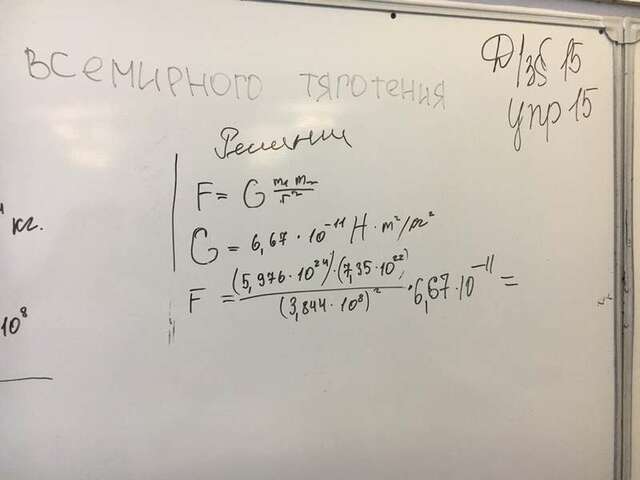 всемирного тяготения
Д/з § 15
упр 15
Решение
F = G m₁ m₂ / r²
кг.
G = 6,67 · 10⁻¹¹ Н · м²/кг²
F = (5,976 · 10²⁴) · (7,35 · 10²²) / (3,844 · 10⁸)² · 6,67 · 10⁻¹¹ =
10⁸